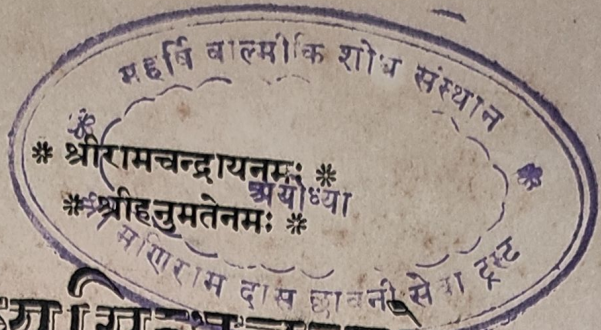 महर्षि वाल्मीकि शोध संस्थान
* श्रीरामचन्द्रायनमः *
अयोध्या
* श्रीहनुमतेनमः *
मणिराम दास छावनी सेवा ट्रस्ट